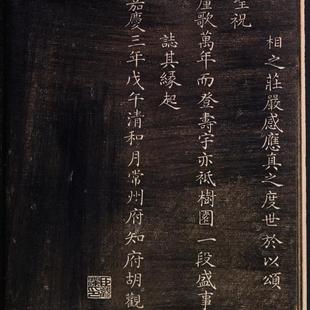 相之莊嚴感應真之度世於以頌
聖祝
釐歌萬年而登壽宇亦祇樹園一段盛事
誌其緣起
嘉慶三年戊午清和月常州府知府胡觀